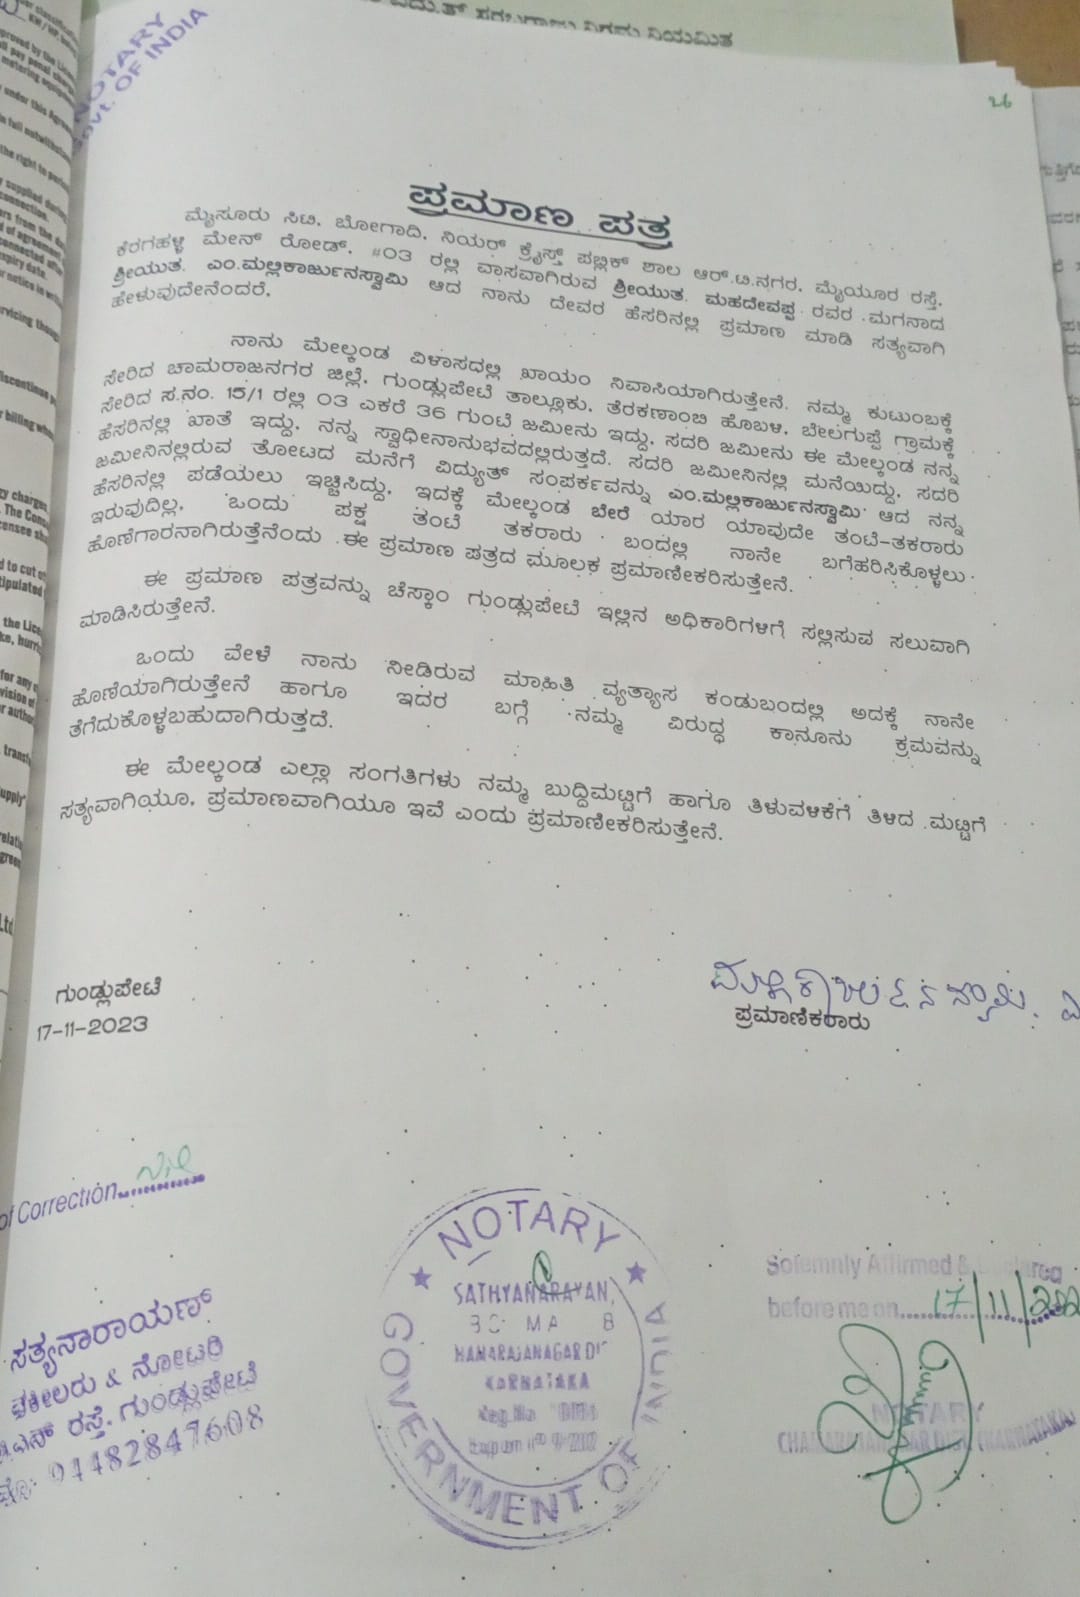 ವಿದ್ಯುತ್ ಸರಬರಾಜು ನಿಗಮ ನಿಯಮಿತ
NOTARY
Govt. OF INDIA
ಪ್ರಮಾಣ ಪತ್ರ
ಮೈಸೂರು ಸಿಟಿ, ಬೋಗಾದಿ, ನಿಯರ್ ಕ್ರೈಸ್ತ್ ಪಬ್ಲಿಕ್ ಶಾಲ ಆರ್.ಟಿ.ನಗರ, ಮೈಯೂರ ರಸ್ತೆ,
ಕೆರಗಹಳ್ಳಿ ಮೇನ್ ರೋಡ್, #03 ರಲ್ಲಿ ವಾಸವಾಗಿರುವ ಶ್ರೀಯುತ. ಮಹದೇವಪ್ಪ ರವರ ಮಗನಾದ
ಶ್ರೀಯುತ. ಎಂ.ಮಲ್ಲಿಕಾರ್ಜುನಸ್ವಾಮಿ ಆದ ನಾನು ದೇವರ ಹೆಸರಿನಲ್ಲಿ ಪ್ರಮಾಣ ಮಾಡಿ ಸತ್ಯವಾಗಿ
ಹೇಳುವುದೇನೆಂದರೆ,
ನಾನು ಮೇಲ್ಕಂಡ ವಿಳಾಸದಲ್ಲಿ ಖಾಯಂ ನಿವಾಸಿಯಾಗಿರುತ್ತೇನೆ. ನಮ್ಮ ಕುಟುಂಬಕ್ಕೆ
ಸೇರಿದ ಚಾಮರಾಜನಗರ ಜಿಲ್ಲೆ, ಗುಂಡ್ಲುಪೇಟೆ ತಾಲ್ಲೂಕು, ತೆರಕಣಾಂಬಿ ಹೊಬಳಿ, ಬೇಲಗುಪ್ಪೆ ಗ್ರಾಮಕ್ಕೆ
ಸೇರಿದ ಸ.ನಂ. 15/1 ರಲ್ಲಿ 03 ಎಕರೆ 36 ಗುಂಟೆ ಜಮೀನು ಇದ್ದು, ಸದರಿ ಜಮೀನು ಈ ಮೇಲ್ಕಂಡ ನನ್ನ
ಹೆಸರಿನಲ್ಲಿ ಖಾತೆ ಇದ್ದು, ನನ್ನ ಸ್ವಾಧೀನಾನುಭವದಲ್ಲಿರುತ್ತದೆ. ಸದರಿ ಜಮೀನಿನಲ್ಲಿ ಮನೆಯಿದ್ದು, ಸದರಿ
ಜಮೀನಿನಲ್ಲಿರುವ ತೋಟದ ಮನೆಗೆ ವಿದ್ಯುತ್ ಸಂಪರ್ಕವನ್ನು ಎಂ.ಮಲ್ಲಿಕಾರ್ಜುನಸ್ವಾಮಿ ಆದ ನನ್ನ
ಹೆಸರಿನಲ್ಲಿ ಪಡೆಯಲು ಇಚ್ಚಿಸಿದ್ದು, ಇದಕ್ಕೆ ಮೇಲ್ಕಂಡ ಬೇರೆ ಯಾರ ಯಾವುದೇ ತಂಟೆ-ತಕರಾರು
ಇರುವುದಿಲ್ಲ, ಒಂದು ಪಕ್ಷ ತಂಟೆ ತಕರಾರು ಬಂದಲ್ಲಿ ನಾನೇ ಬಗೆಹರಿಸಿಕೊಳ್ಳಲು
ಹೊಣೆಗಾರನಾಗಿರುತ್ತೆನೆಂದು ಈ ಪ್ರಮಾಣ ಪತ್ರದ ಮೂಲಕ ಪ್ರಮಾಣೀಕರಿಸುತ್ತೇನೆ.
ಈ ಪ್ರಮಾಣ ಪತ್ರವನ್ನು ಚೆಸ್ಕಾಂ ಗುಂಡ್ಲುಪೇಟೆ ಇಲ್ಲಿನ ಅಧಿಕಾರಿಗಳಿಗೆ ಸಲ್ಲಿಸುವ ಸಲುವಾಗಿ
ಮಾಡಿಸಿರುತ್ತೇನೆ.
ಒಂದು ವೇಳೆ ನಾನು ನೀಡಿರುವ ಮಾಹಿತಿ ವ್ಯತ್ಯಾಸ ಕಂಡುಬಂದಲ್ಲಿ ಅದಕ್ಕೆ ನಾನೇ
ಹೊಣೆಯಾಗಿರುತ್ತೇನೆ ಹಾಗೂ ಇದರ ಬಗ್ಗೆ ನಮ್ಮ ವಿರುದ್ಧ ಕಾನೂನು ಕ್ರಮವನ್ನು
ತೆಗೆದುಕೊಳ್ಳಬಹುದಾಗಿರುತ್ತದೆ.
ಈ ಮೇಲ್ಕಂಡ ಎಲ್ಲಾ ಸಂಗತಿಗಳು ನಮ್ಮ ಬುದ್ದಿಮಟ್ಟಿಗೆ ಹಾಗೂ ತಿಳುವಳಿಕೆಗೆ ತಿಳಿದ ಮಟ್ಟಿಗೆ
ಸತ್ಯವಾಗಿಯೂ, ಪ್ರಮಾಣವಾಗಿಯೂ ಇವೆ ಎಂದು ಪ್ರಮಾಣೀಕರಿಸುತ್ತೇನೆ.
ಗುಂಡ್ಲುಪೇಟೆ
17-11-2023
ಮಲ್ಲಿಕಾರ್ಜುನಸ್ವಾಮಿ. ಎ
ಪ್ರಮಾಣಿಕರಾರು
of Correction Nil
ಸತ್ಯನಾರಾಯಣ್
ವಕೀಲರು & ನೋಟರಿ
ರಸ್ತೆ, ಗುಂಡ್ಲುಪೇಟೆ
ಮೊ: 94482847608
NOTARY
GOVERNMENT OF INDIA
SATHYANARAYAN,
KARNATAKA
Solemnly Affirmed & Declared
before me on 17/11/202
NOTARY
CHAMARAJANAGAR DIST. (KARNATAKA)